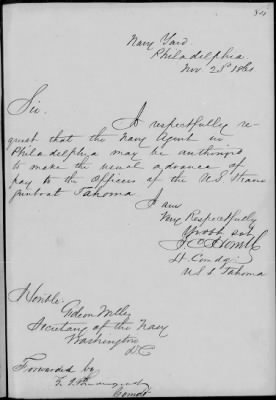 Navy Yard
Philadelphia
Nov 23d 1861
Sir.
I respectfully re-
quest that the Navy Agent in
Philadelphia may be authorized
to make the usual advance of
pay to the Officers of the U.S. Steam
gunboat Tahoma
I am
Very Respectfully
Your obt svt
Lt. Comdg.
U S S Tahoma
Honble.
Gideon Welles
Secretary of the Navy
Washington
D.C
Forwarded by
Comdt